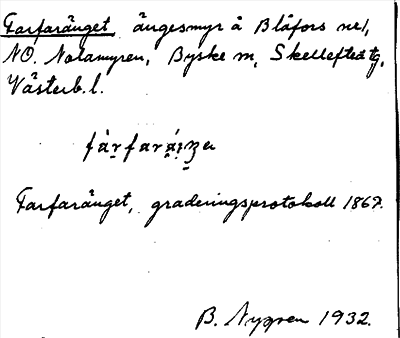 Farfaränget ängesmyr å Blåfors nr 1,
NO. Notamyren, Byske sn, Skellefteå tg,
Västerb. l.
Farfaränget, graderingsprotokoll 1867.
B. Nygren 1932.